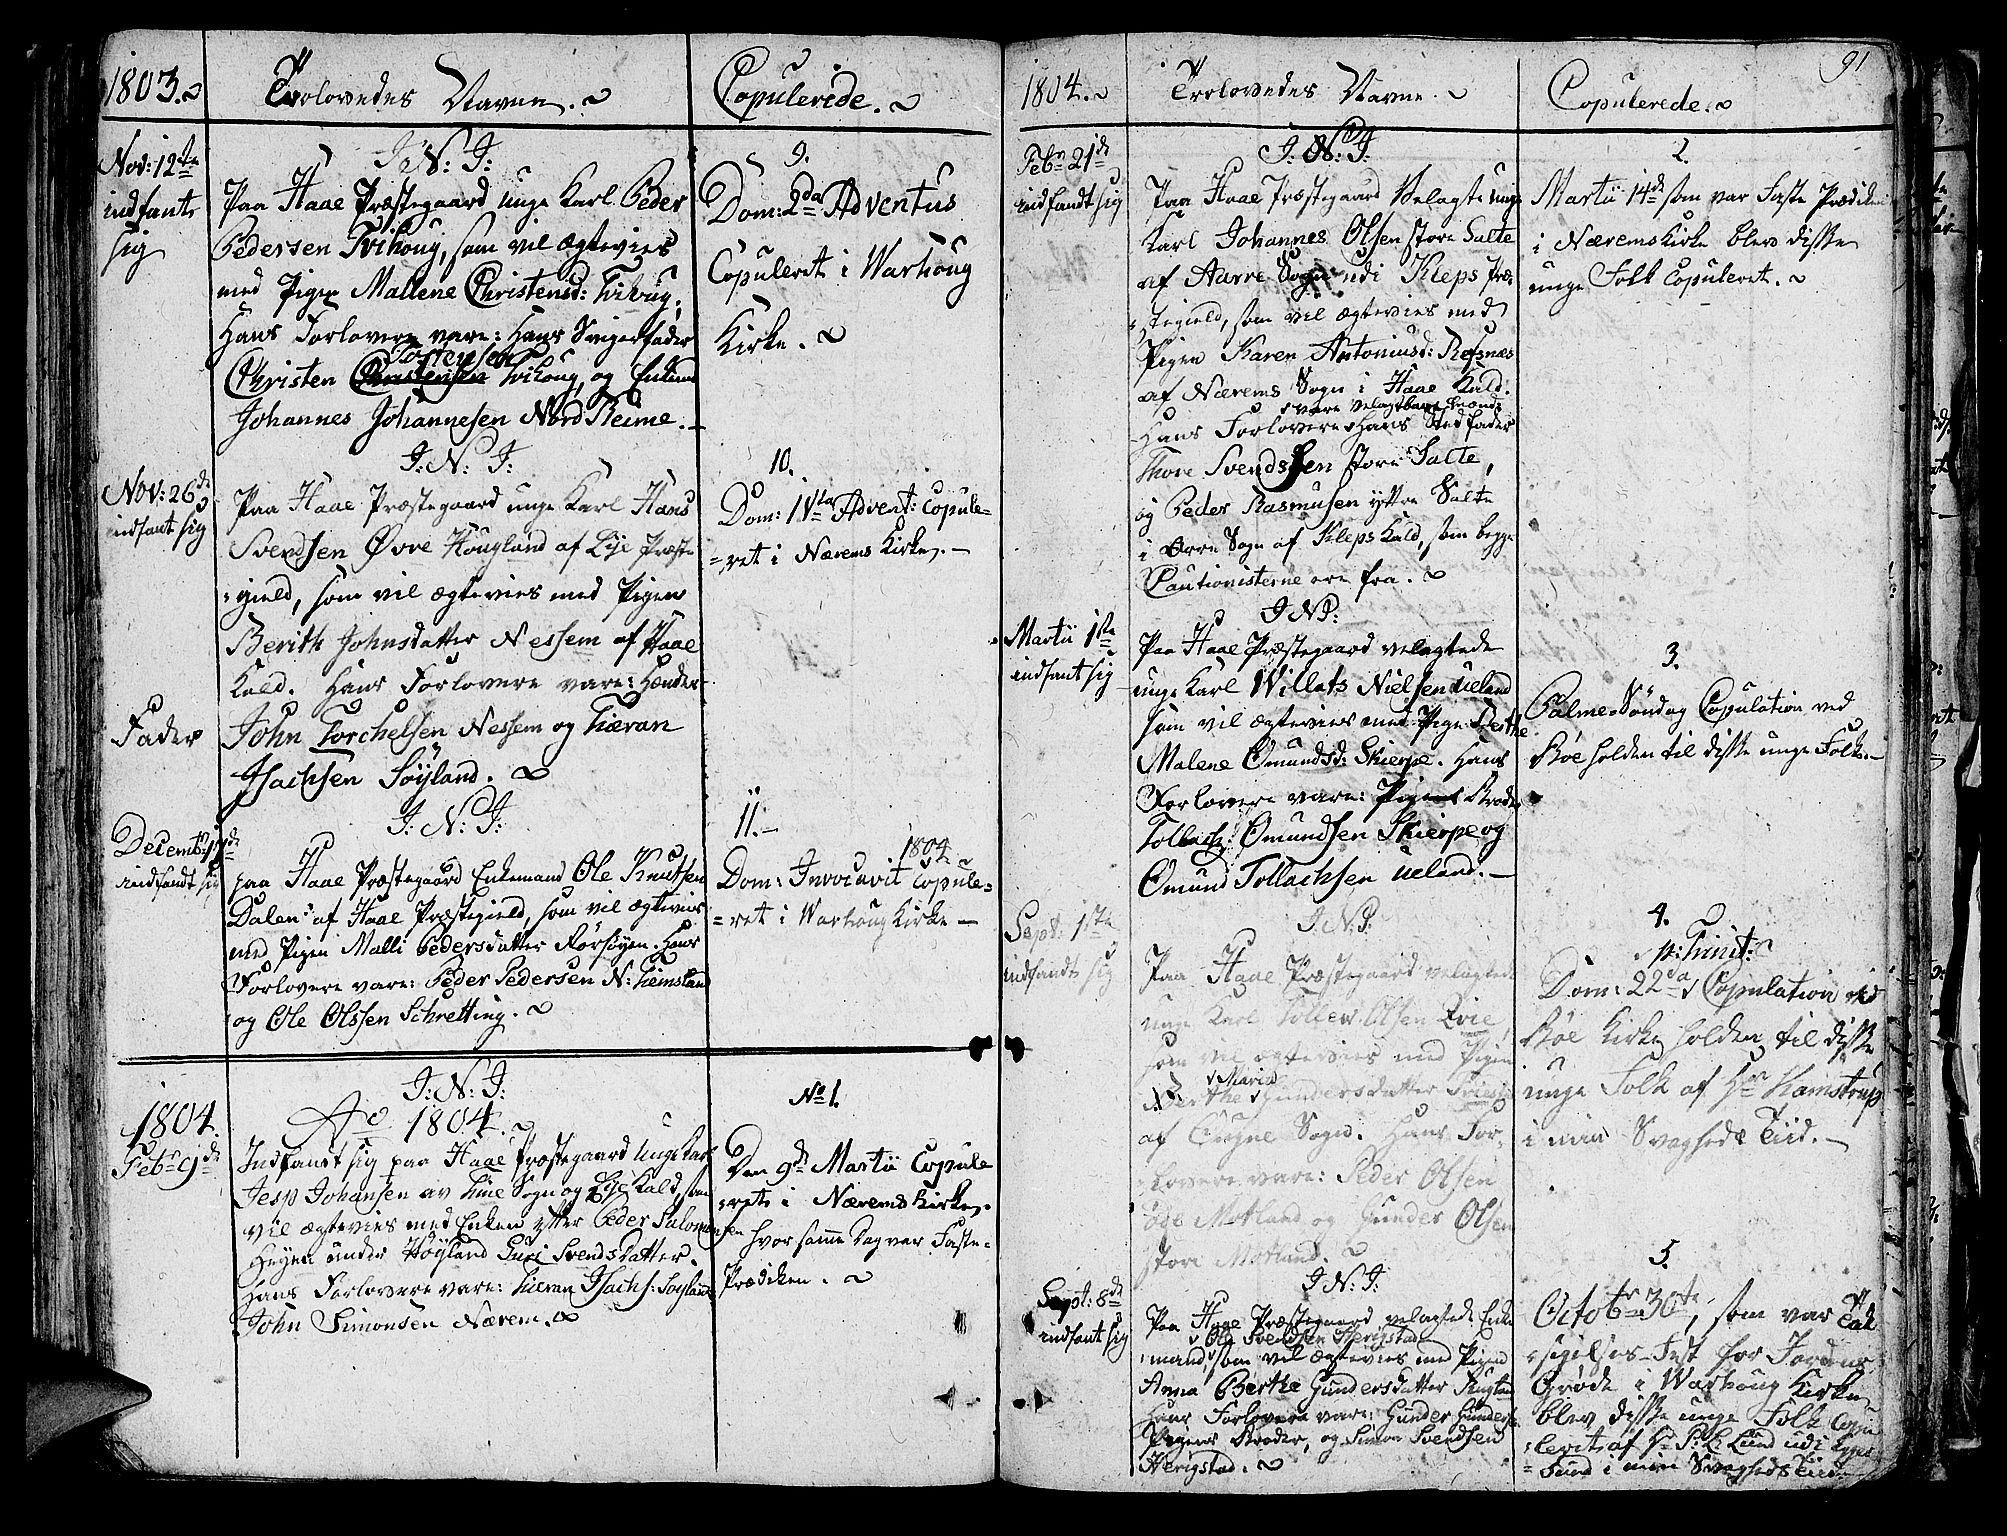 1803.
Trolovedes Navne.
Copulerede.
Nov: 12te
indfant
sig
J: N: J:
Paa Haae Præstegaard unge Karl Peder
Pedersen Tvihoug, som vil ægtevies
med Pigen Mallene Christensd: Tvihug,
Hans Forlovere vare: Hans Svigerfader
Torgersen
Christen Christensen Tvihoug, og
Johannes Johannesen Nord Reime.
9.
Dom: 2da Adventus
Copuleret i Warhoug
Kirke.
Nov: 26de
indfant sig
Fader
J: N: J:
Paa Haae Præstegaard unge Karl Hans
Svendsen Øvre Hougland af Lye Præste
gield, som vil ægtevies med Pigen
Berith Johnsdatter Nessem af Haae
Kald. Hans Forlovere vare: Hendes
John Torchelsen Nessem og Tieran
Jsachsen Söyland.
10.
Dom: 1Vta Advent: Copule=
=ret i Nærems Kirke. —
Decembr: 17de
indfandt sig
J: N: J:
paa Haae Præstegaard Enkemand Ole Knutsen
Dalen af Haae Præstegield, som vil ægtevies
med Pigen Malli Pedersdatter Rörvigen. Hans
Forlovere vare: Peder Pedersen N: Kiemsland
og Ole Olssen Schretting.
11. —
1804
Dom: Invocavit Copule=
=ret i Warhoug Kirke —
1804.
Febr 9de
J: N: J:
Ao 1804.
Indfandt sig paa Haae Præstegaard Unge Karl
Jesp Johansen av Time Sogn og Lye Kald, som
vil ægtevies med Enken efter Peder Salomon
sen
Heyen under Höyland Guri Svendsdatter.
Hans Forlovere vare: Tieran Jsachs: Söyland
John Simonsen Nærem.
No 1.
Den 9de Martii Copule
ret i Nærems Kirke,
hvor samme Dag var Faste=
Prædiken.
91
1804.
Trolovedes Navne.
Copulerede.
Febr 21de
indfandt sig
J: N: J:
Paa Haae Præstegaard Velagte unge
Karl Johannes Olsen store Salte
af Aarre Sogn udi Kleps Præ=
stegield, som vil ægtevies med
Pigen Karen Antoniusd: Refsnæs
af Nærems Sogn i Haae Kald.
vare velagtbare Mænd
Hans Forlovere Hans Stedfader
Thore Svendssen store Salte,
og Peder Rasmusen yttre Salte
i Orre Sogn af Kleps Kald, som begge
Cautionisterne ere fra.
2.
Martii 14de som var Faste Prædiken
i Nærems Kirke blev disse
unge Folk Copuleret.
Martii 1ste
indfant sig
J N J:
Paa Haae Præstegaard velagtede
unge Karl Willats Nielsen Ueland
som vil ægtevies med Pige Berthe
Malene Omundsd: Skierpe. Hans
Forlovere vare: Pigens Broder
Tollach: Omundsen Skierpe og
Omund Tollachsen Ueland. —
3.
Palme Söndag Copulation ved
Böe holden til disse unge Folk. —
Sept: 1ste
indfandt sig
J. N. J:
Paa Haae Præstegaard velagtede
unge Karl Tollev Olsen Qvie,
som vil ægtevies med Pigen
Maria
Berthe Gundersdatter
af Ougne Sogn. Hans For=
lovere vare: Peder Olsen
öde Motland og Gunder Olsen
store Motland.
4.
p: Trinit:
Dom: 22da Copulation ved
Böe Kirke holden til disse
unge Folk af Hr Hamstrup
i min Svagheds Tiid. —
Sept: 8de
indfant sig
J N: J:
Paa Haae Præstegaard velagtede Enke
Ole Svendsen Herigstad
mand, som vil ægtevies med Pigen
Anna Berthe Gundersdatter
Hans Forlovere vare: Gunder Gunders:
Pigens Broder, og Simon Svendsen
Herigstad.
5.
Octobr 30te, som var Tak
sigelses-Fest for Jordens
Gröde i Warhoug Kirke
blev disse unge Folk Copu
leret af Hr P: L: Lund udi Eger=
=sund i min Svagheds Tiid. —